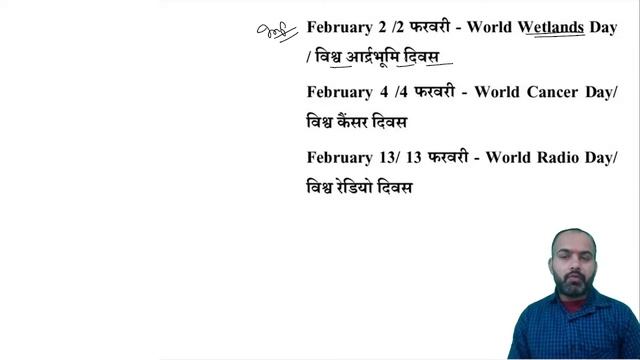 February 2 /2 फरवरी - World Wetlands Day
/ विश्व आर्द्रभूमि दिवस
February 4 /4 फरवरी - World Cancer Day/
विश्व कैंसर दिवस
February 13/ 13 फरवरी - World Radio Day/
विश्व रेडियो दिवस